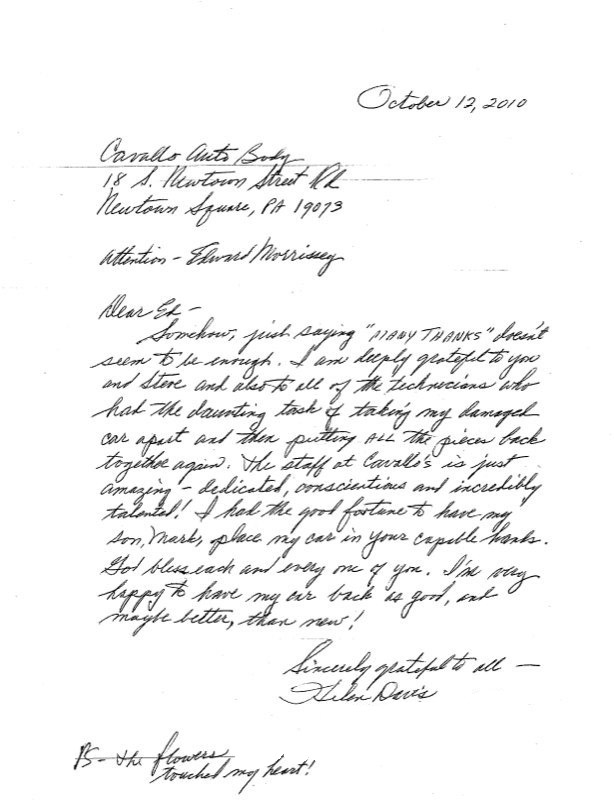 October 12, 2010
Cavallo Auto Body
18 S. Newtown Street Rd
Newtown Square, PA 19073
Attention - Edward Morrissey
Dear Ed -
Somehow, just saying "MANY THANKS" doesn't
seem to be enough. I am deeply grateful to you
and Steve and also to all of the technicians who
had the daunting task of taking my damaged
car apart and then putting ALL the pieces back
together again. The staff at Cavallo's is just
amazing - dedicated, conscientious and incredibly
talented! I had the good fortune to have my
son, Mark, place my car in your capable hands.
God bless each and every one of you. I'm very
happy to have my car back as good, and
maybe better, than new!
Sincerely grateful to all -
Helen Davis
PS - The flowers
touched my heart!